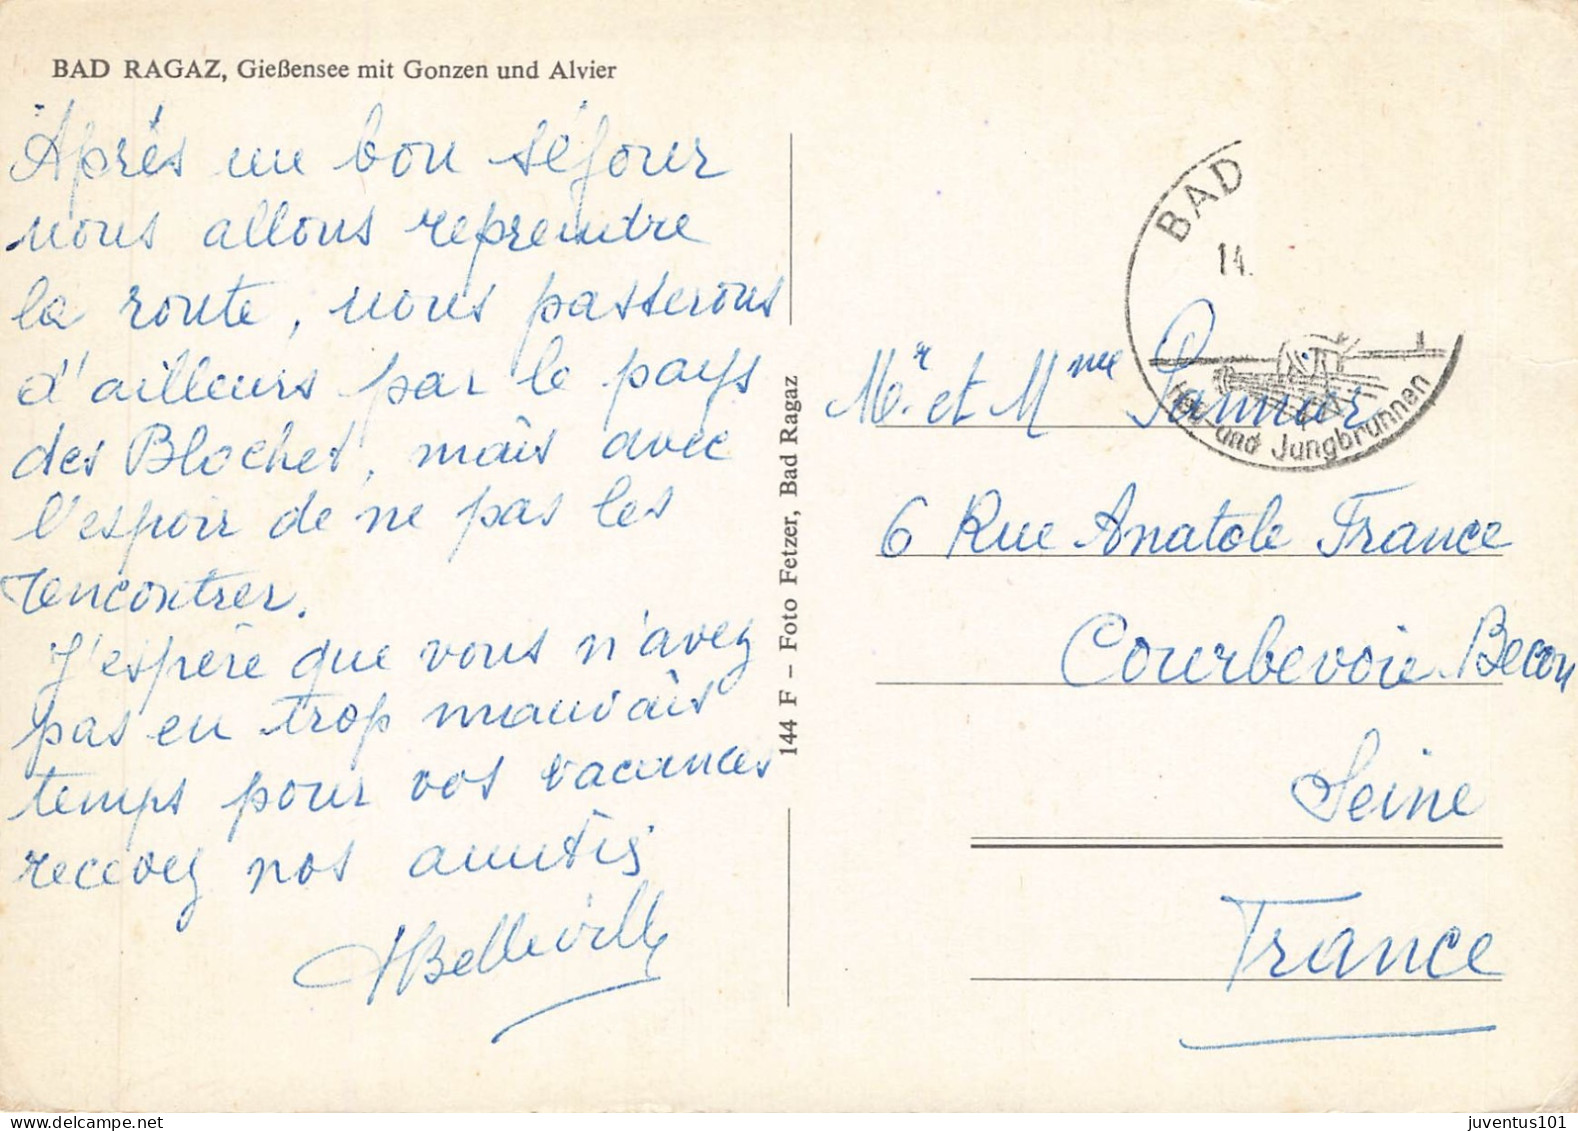 BAD RAGAZ, Gießensee mit Gonzen und Alvier
Après un bon séjour
nous allons reprendre
la route, nous passerons
d'ailleurs par le pays
des Bloches, mais avec
l'espoir de ne pas les
rencontrer.
J'espère que vous n'avez
pas eu trop mauvais
temps pour vos vacances
recevez nos amitiés
HBelleville
144 F – Foto Fetzer, Bad Ragaz
BAD
14.
und Jungbrunnen
Mr. et Mme
6 Rue Anatole France
Courbevoie Becon
Seine
France
juventus101